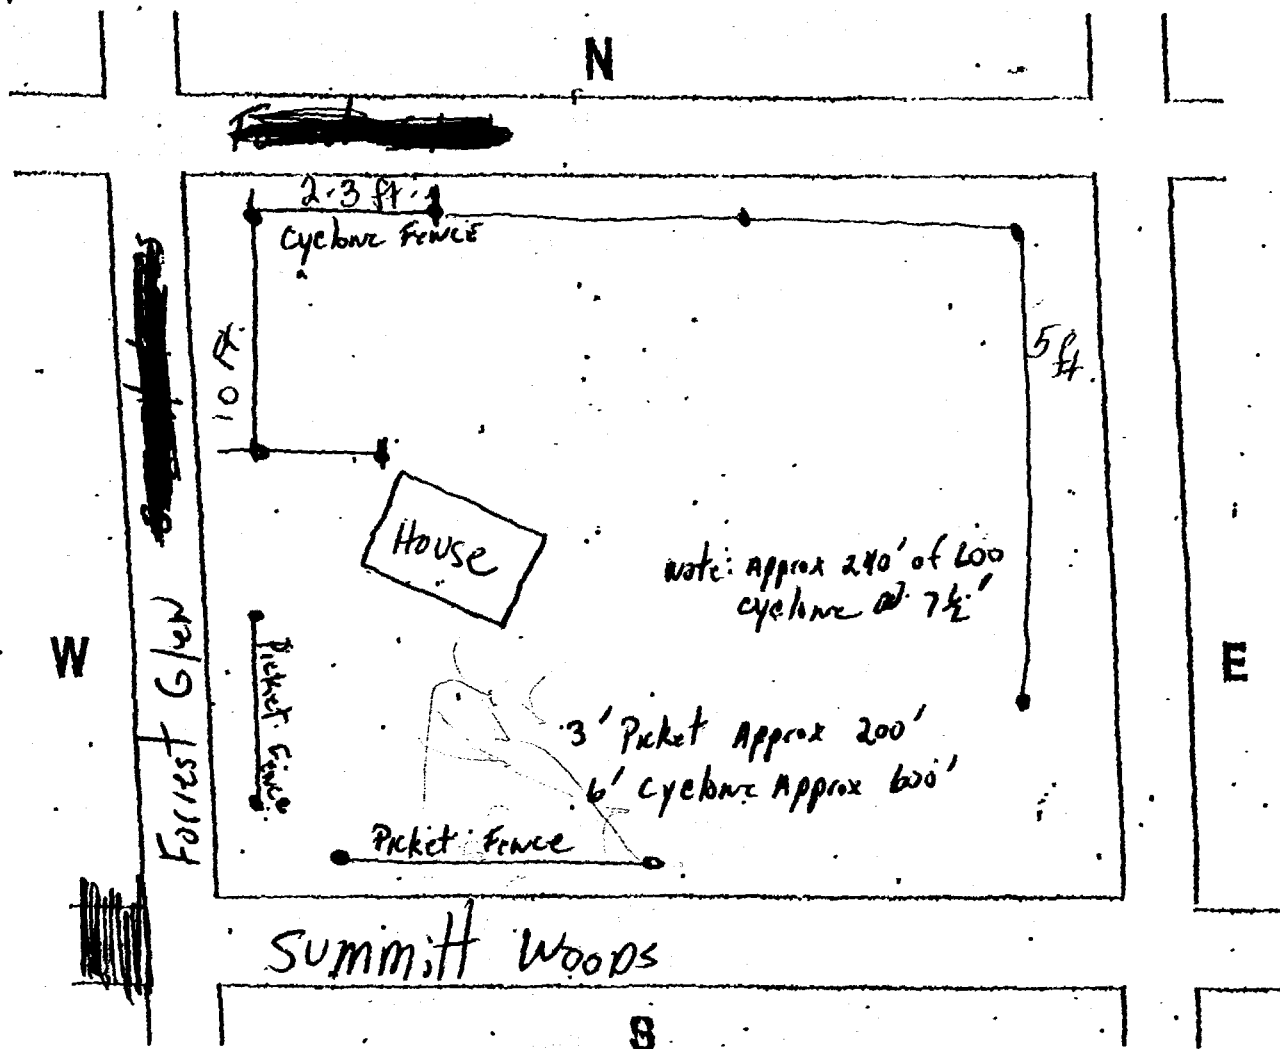 N
2.3 ft.
Cyclone FENCE
10 Ft.
5 ft.
House
Note: Approx 240' of 600
cyclone @ 7½'
W
E
Forrest Glen
Picket Fence
3' Picket Approx 200'
6' Cyclone Approx 600'
Picket Fence
Summitt Woods
S